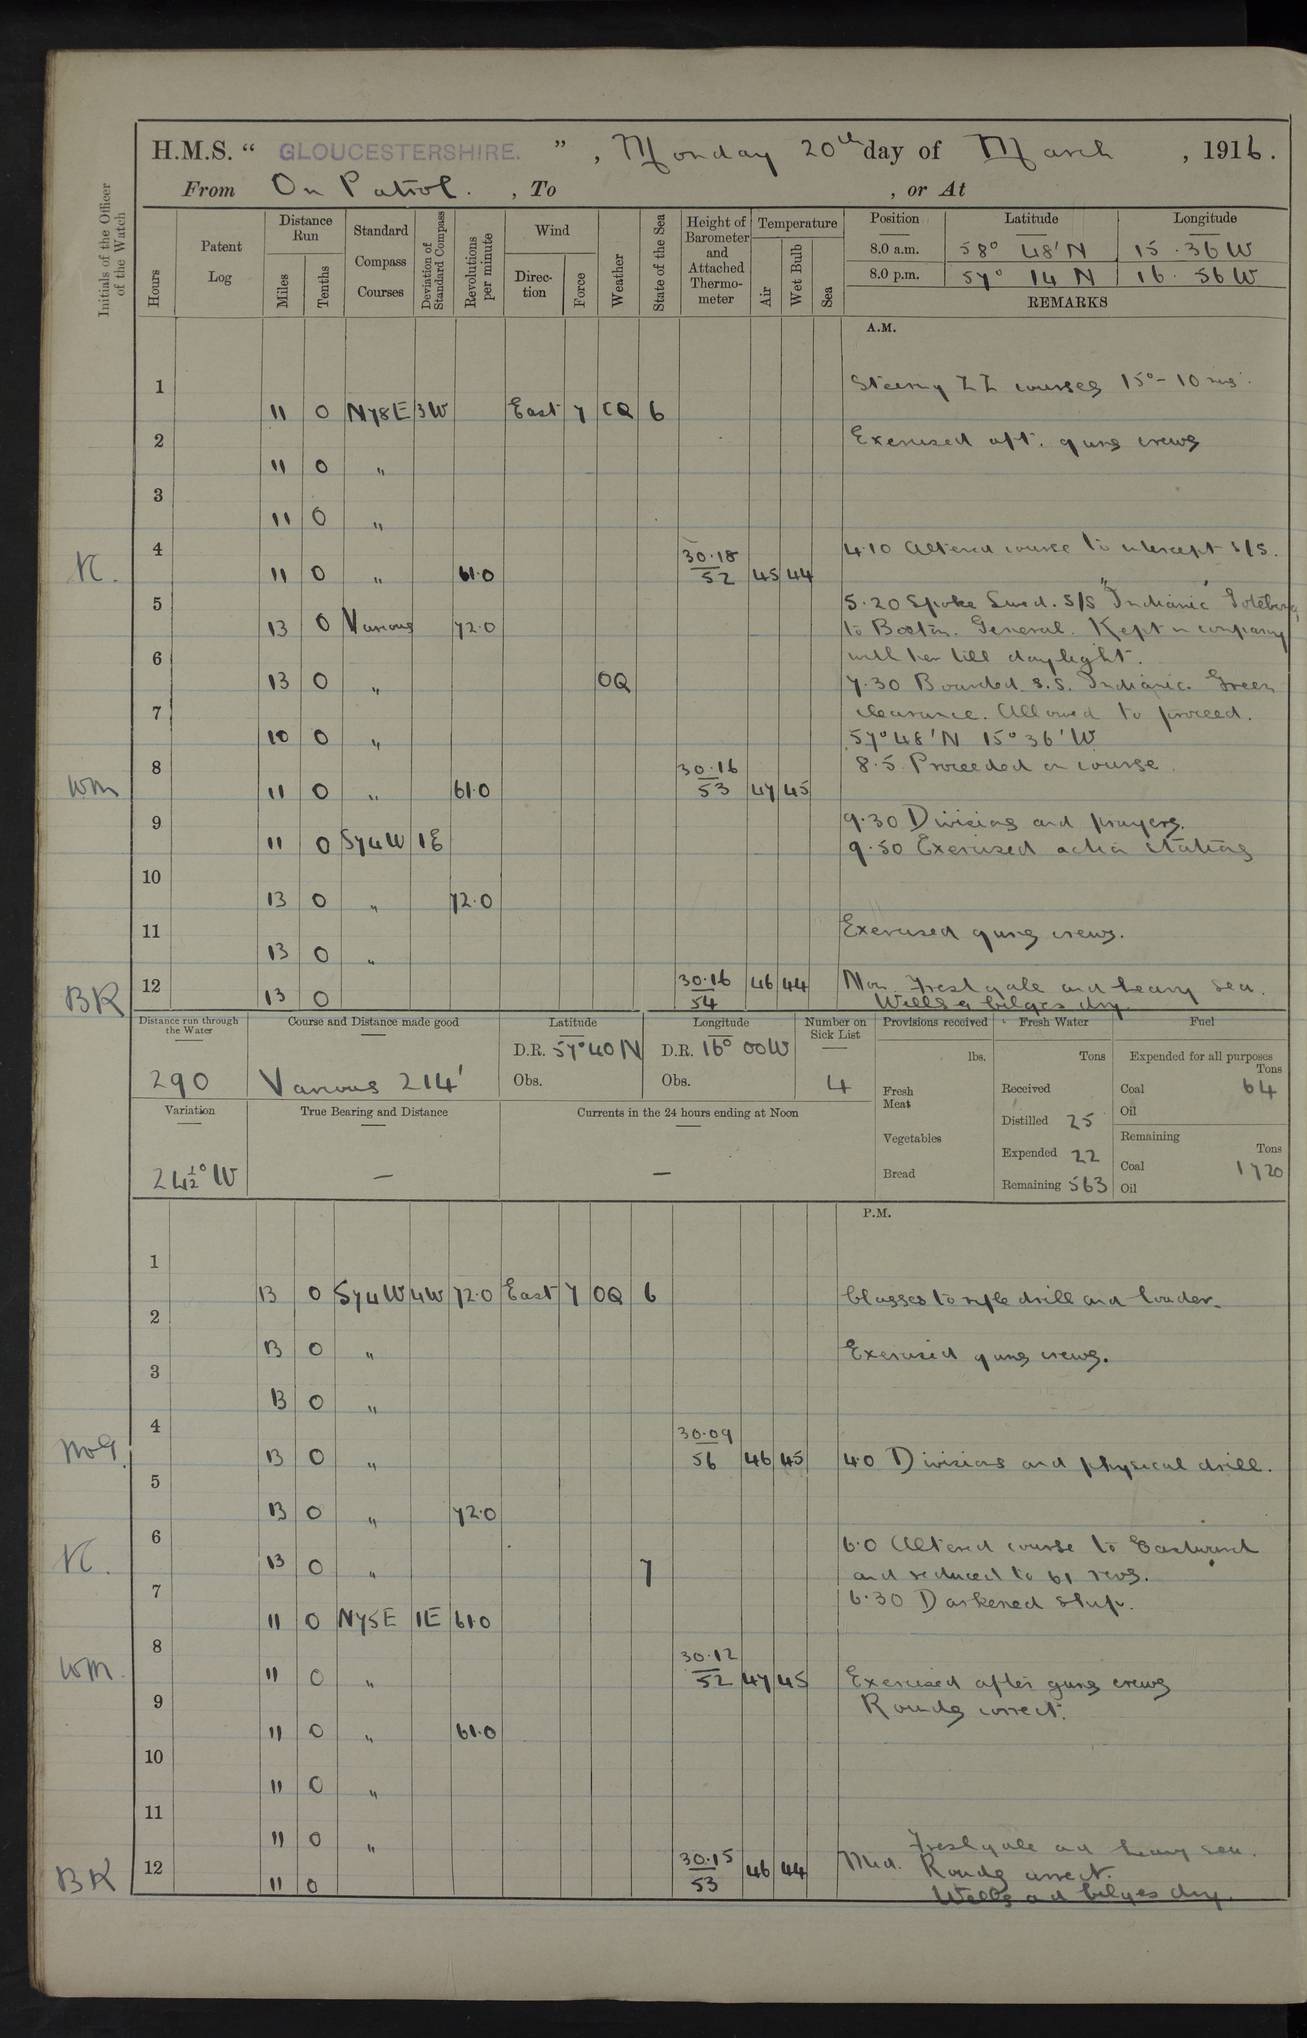 H.M.S. “ GLOUCESTERSHIRE. ” , Monday 20th day of March , 1916.
From On Patrol. , To , or At
Initials of the Officer of the Watch
Hours
Patent Log
Distance Run
Miles
Tenths
Standard Compass Courses
Deviation of Standard Compass
Revolutions per minute
Wind
Direction
Force
Weather
State of the Sea
Height of Barometer and Attached Thermometer
Temperature
Air
Wet Bulb
Sea
Position Latitude Longitude
8.0 a.m. 58° 48' N 15 · 36 W
8.0 p.m. 57° 14 N 16 · 56 W
REMARKS
A.M.
1 11 0 N78E 3W East 7 CQ 6 Steering ZZ courses 15° - 10 mgs.
2 11 0 " Exercised aft. guns crews
3 11 0 "
N. 4 11 0 " 61.0 30.18 52 45 44 4.10 Altered course to intercept s/s.
5 13 0 Various 72.0 5.20 Spoke Swed. S/S "Indianic" Goteborg
to Boston. General. Kept in company
with her till daylight.
6 13 0 " OQ 7.30 Boarded s.s. Indianic. Green
7 10 0 " clearance. Allowed to proceed.
57°48'N 15°36'W
WM 8 11 0 " 61.0 30.16 53 47 45 8.5 Proceeded on course.
9 11 0 S74W 1E 9.30 Divisions and prayers.
9.50 Exercised action stations
10 13 0 " 72.0
11 13 0 " Exercised guns crews.
BR 12 13 0 30.16 54 46 44 Noon. Fresh gale and heavy sea.
Wells & bilges dry.
Distance run through the Water
290
Course and Distance made good
Various 214'
Latitude
D.R. 57°40 N
Obs.
Longitude
D.R. 16° 00 W
Obs.
Number on Sick List
4
Provisions received
lbs.
Fresh Meat
Vegetables
Bread
Fresh Water
Tons
Received
Distilled 25
Expended 22
Remaining 563
Fuel
Expended for all purposes
Tons
Coal 64
Oil
Remaining
Tons
Coal 1720
Oil
Variation
24½° W
True Bearing and Distance
—
Currents in the 24 hours ending at Noon
—
P.M.
1 13 0 S74W 4W 72.0 East 7 OQ 6 Classes to rifle drill and loader.
2 13 0 " Exercised guns crews.
3 13 0 "
4 13 0 " 30.09 56 46 45 4.0 Divisions and physical drill.
5 13 0 " 72.0
N. 6 13 0 " 7 6.0 Altered course to Eastward
and reduced to 61 revs.
6.30 Darkened ship.
7 11 0 N75E 1E 61.0
WM. 8 11 0 " 30.12 52 47 45 Exercised after guns crews
Rounds correct.
9 11 0 " 61.0
10 11 0 "
11 11 0 "
Fresh gale and heavy sea.
BR 12 11 0 30.15 53 46 44 Mid. Rounds correct.
Wells and bilges dry.